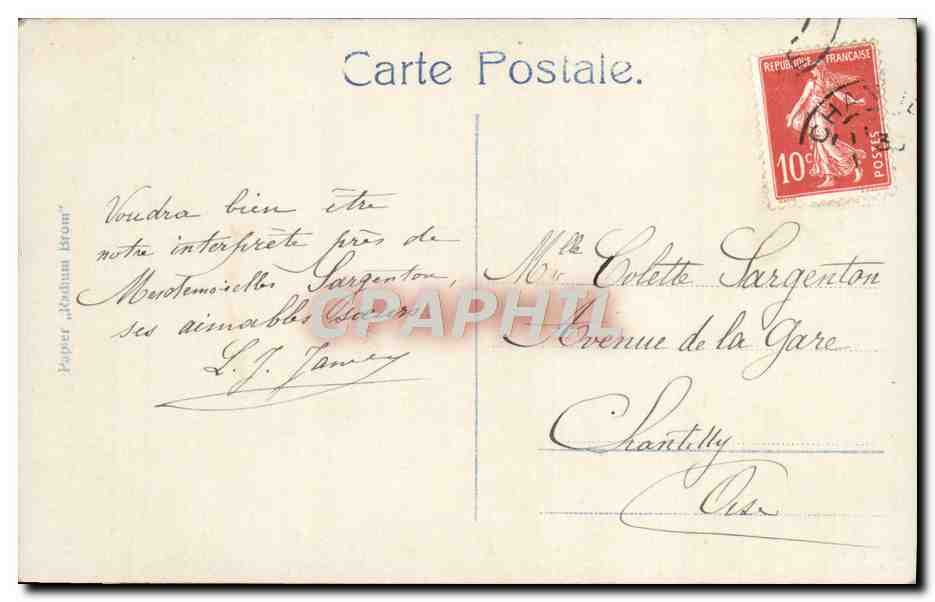 Carte Postale.
REPUBLIQUE FRANÇAISE
10c
POSTES
Papier „Radium Brom"
Voudra bien être
notre interprète près de
Mesdemoiselles Sargenton,
ses aimables soeurs
L. J.
Mlle Colette Sargenton
Avenue de la Gare
Chantilly
Oise
CPAPHIL